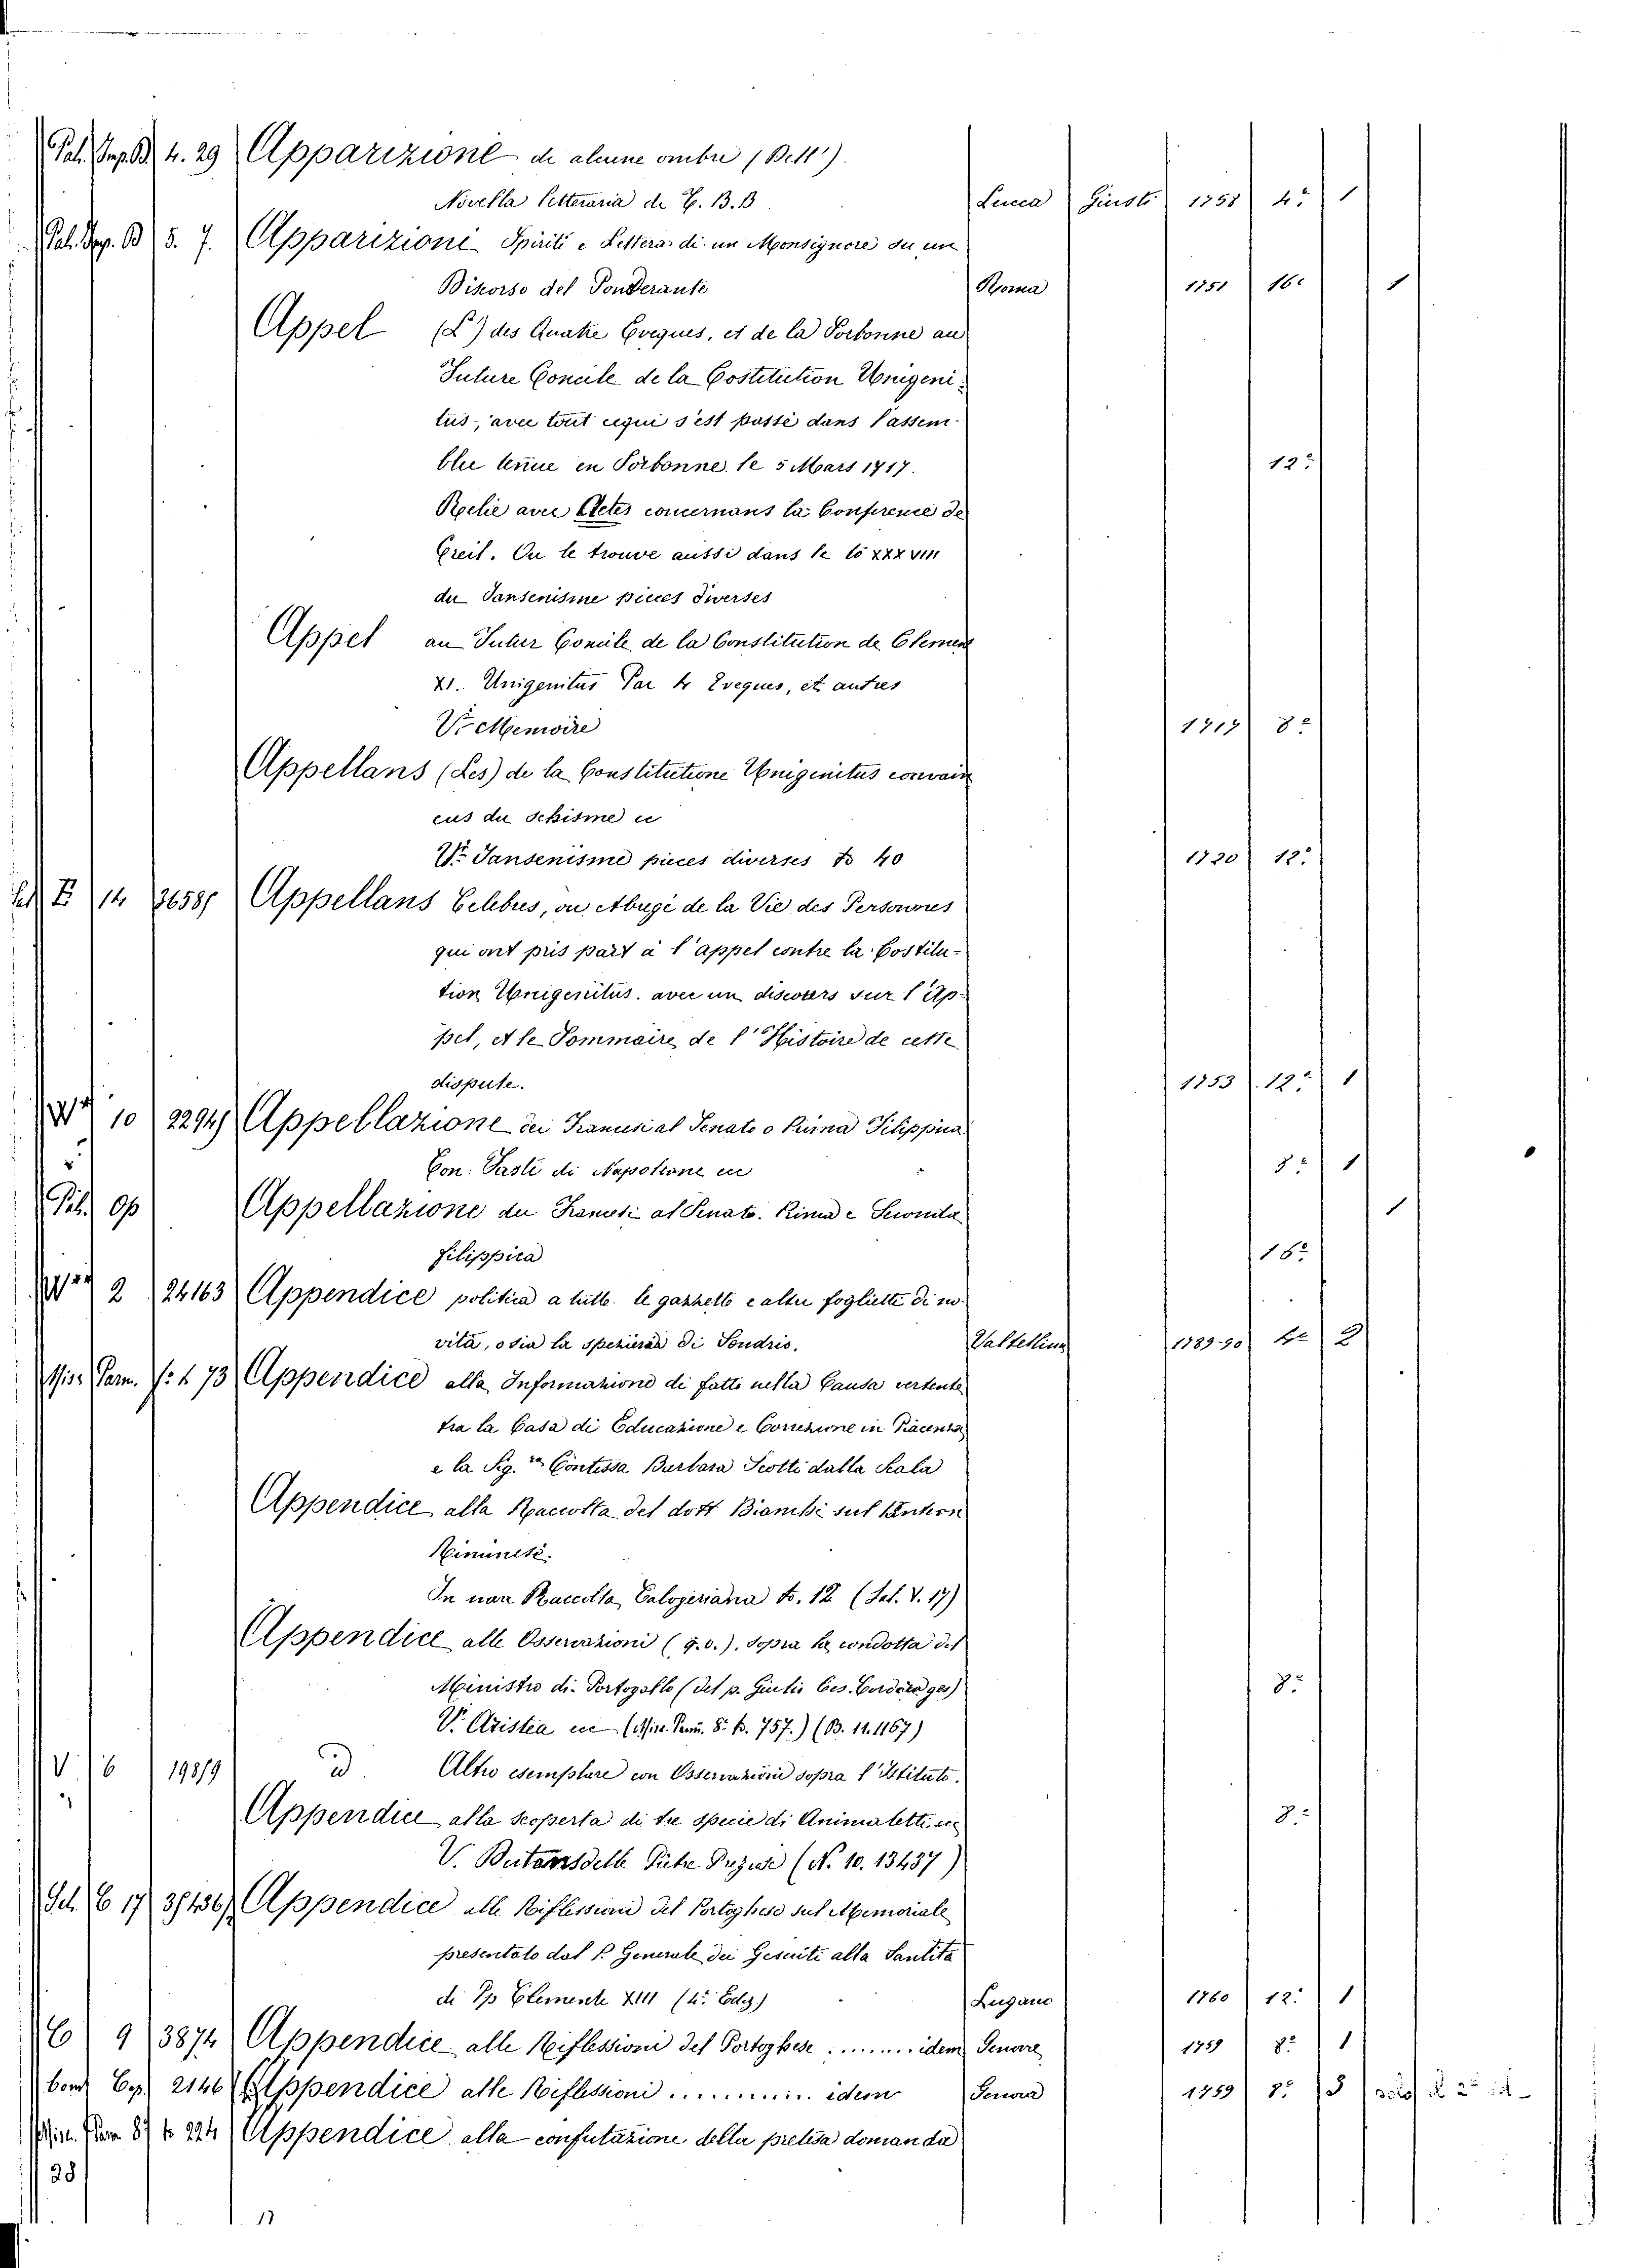 Pal. Imp. B 4. 29 Apparizione di alcune ombre (Bett')
Novella Letteraria di G. B. B. Lucca Giusti 1758 4º 1
Pal. Imp. B 5. 7. Apparizioni Spiriti e Lettera di un Monsignore su un
Discorso del Ponderante Roma 1751 16º 1
Appel (L') des Quatre Eveques, et de la Sorbonne au
Future Concile de la Costitution Unigeni-
tus, avec tout ce qui s'est passé dans l'assem-
blee tenue en Sorbonne le 5 Mars 1717. 12º
Relie avec Actes concernans la Conference de
Creil. On le trouve aussi dans le to XXXVIII
du Jansenisme pieces diverses
Appel au Futur Concile de la Constitution de Clement
XI. Unigenitus Par 4 Eveques, et autres
V. Memoire 1717 8º
Appellans (Les) de la Constitutione Unigenitus convain
cus du schisme
V. Jansenisme pieces diverses to 40 1720 12º
14 Appellans Celebres, ou Abregé de la Vie des Personnes
qui ont pris part à l'appel contre la Costitu-
tion Unigenitus. avec un discours sur l'Ap-
pel, et le Sommaire de l'Histoire de cette
dispute. 1753 12º 1
10 2294 Appellazione dei Francesi al Senato o Prima Filippica
Con. Fasti di Napoleone 8º 1
Op Appellazione dei Francesi al Senato. Prima e Seconda 1
Filippica 16º
2 24163 Appendice politica a tutte le gazzette e altri foglietti di no-
vità, o sia la speziaria di Sondrio. Valtellina 1789-90 4º 2
Misc. Parm. fº t 73 Appendice alla Informazione di fatto nella Causa vertente
tra la Casa di Educazione e Correzione in Piacenza
e la Sig.ra Contessa Barbara Scotti dalla Scala
Appendice alla Raccolta del dott Bianchi sul Panteon
Riminese.
In nuov Raccolta Calogeriana to. 12 (Sal. V. 17)
Appendice alle Osservazioni (q.o.). Sopra la condotta del
Ministro di Portogallo (del p. Giulio Ces. Cordara ges) 8º
V. Aristea (Misc. Parm. 8º to. 757.) (B. 11. 1167)
V 6 19819 id. Altro esemplare con Osservazioni sopra l'Istituto.
Appendice alla scoperta di tre specie di Animaletti 8º
V. delle (N. 10. 13437)
17 Appendice alle Riflessioni del Portoghese sul Memoriale
presentato dal P. Generale dei Gesuiti alla Santità
di Pp Clemente XIII (4ª Ediz) Lugano 1760 12º 1
C 9 3874 Appendice alle Riflessioni del Portoghese ........ idem Genova 1759 8º 1
2146 Appendice alle Riflessioni ......... idem Genova 1759 8º
Misc. Parm. 8º to 224 Appendice alla confutazione della pretesa domanda
28
17